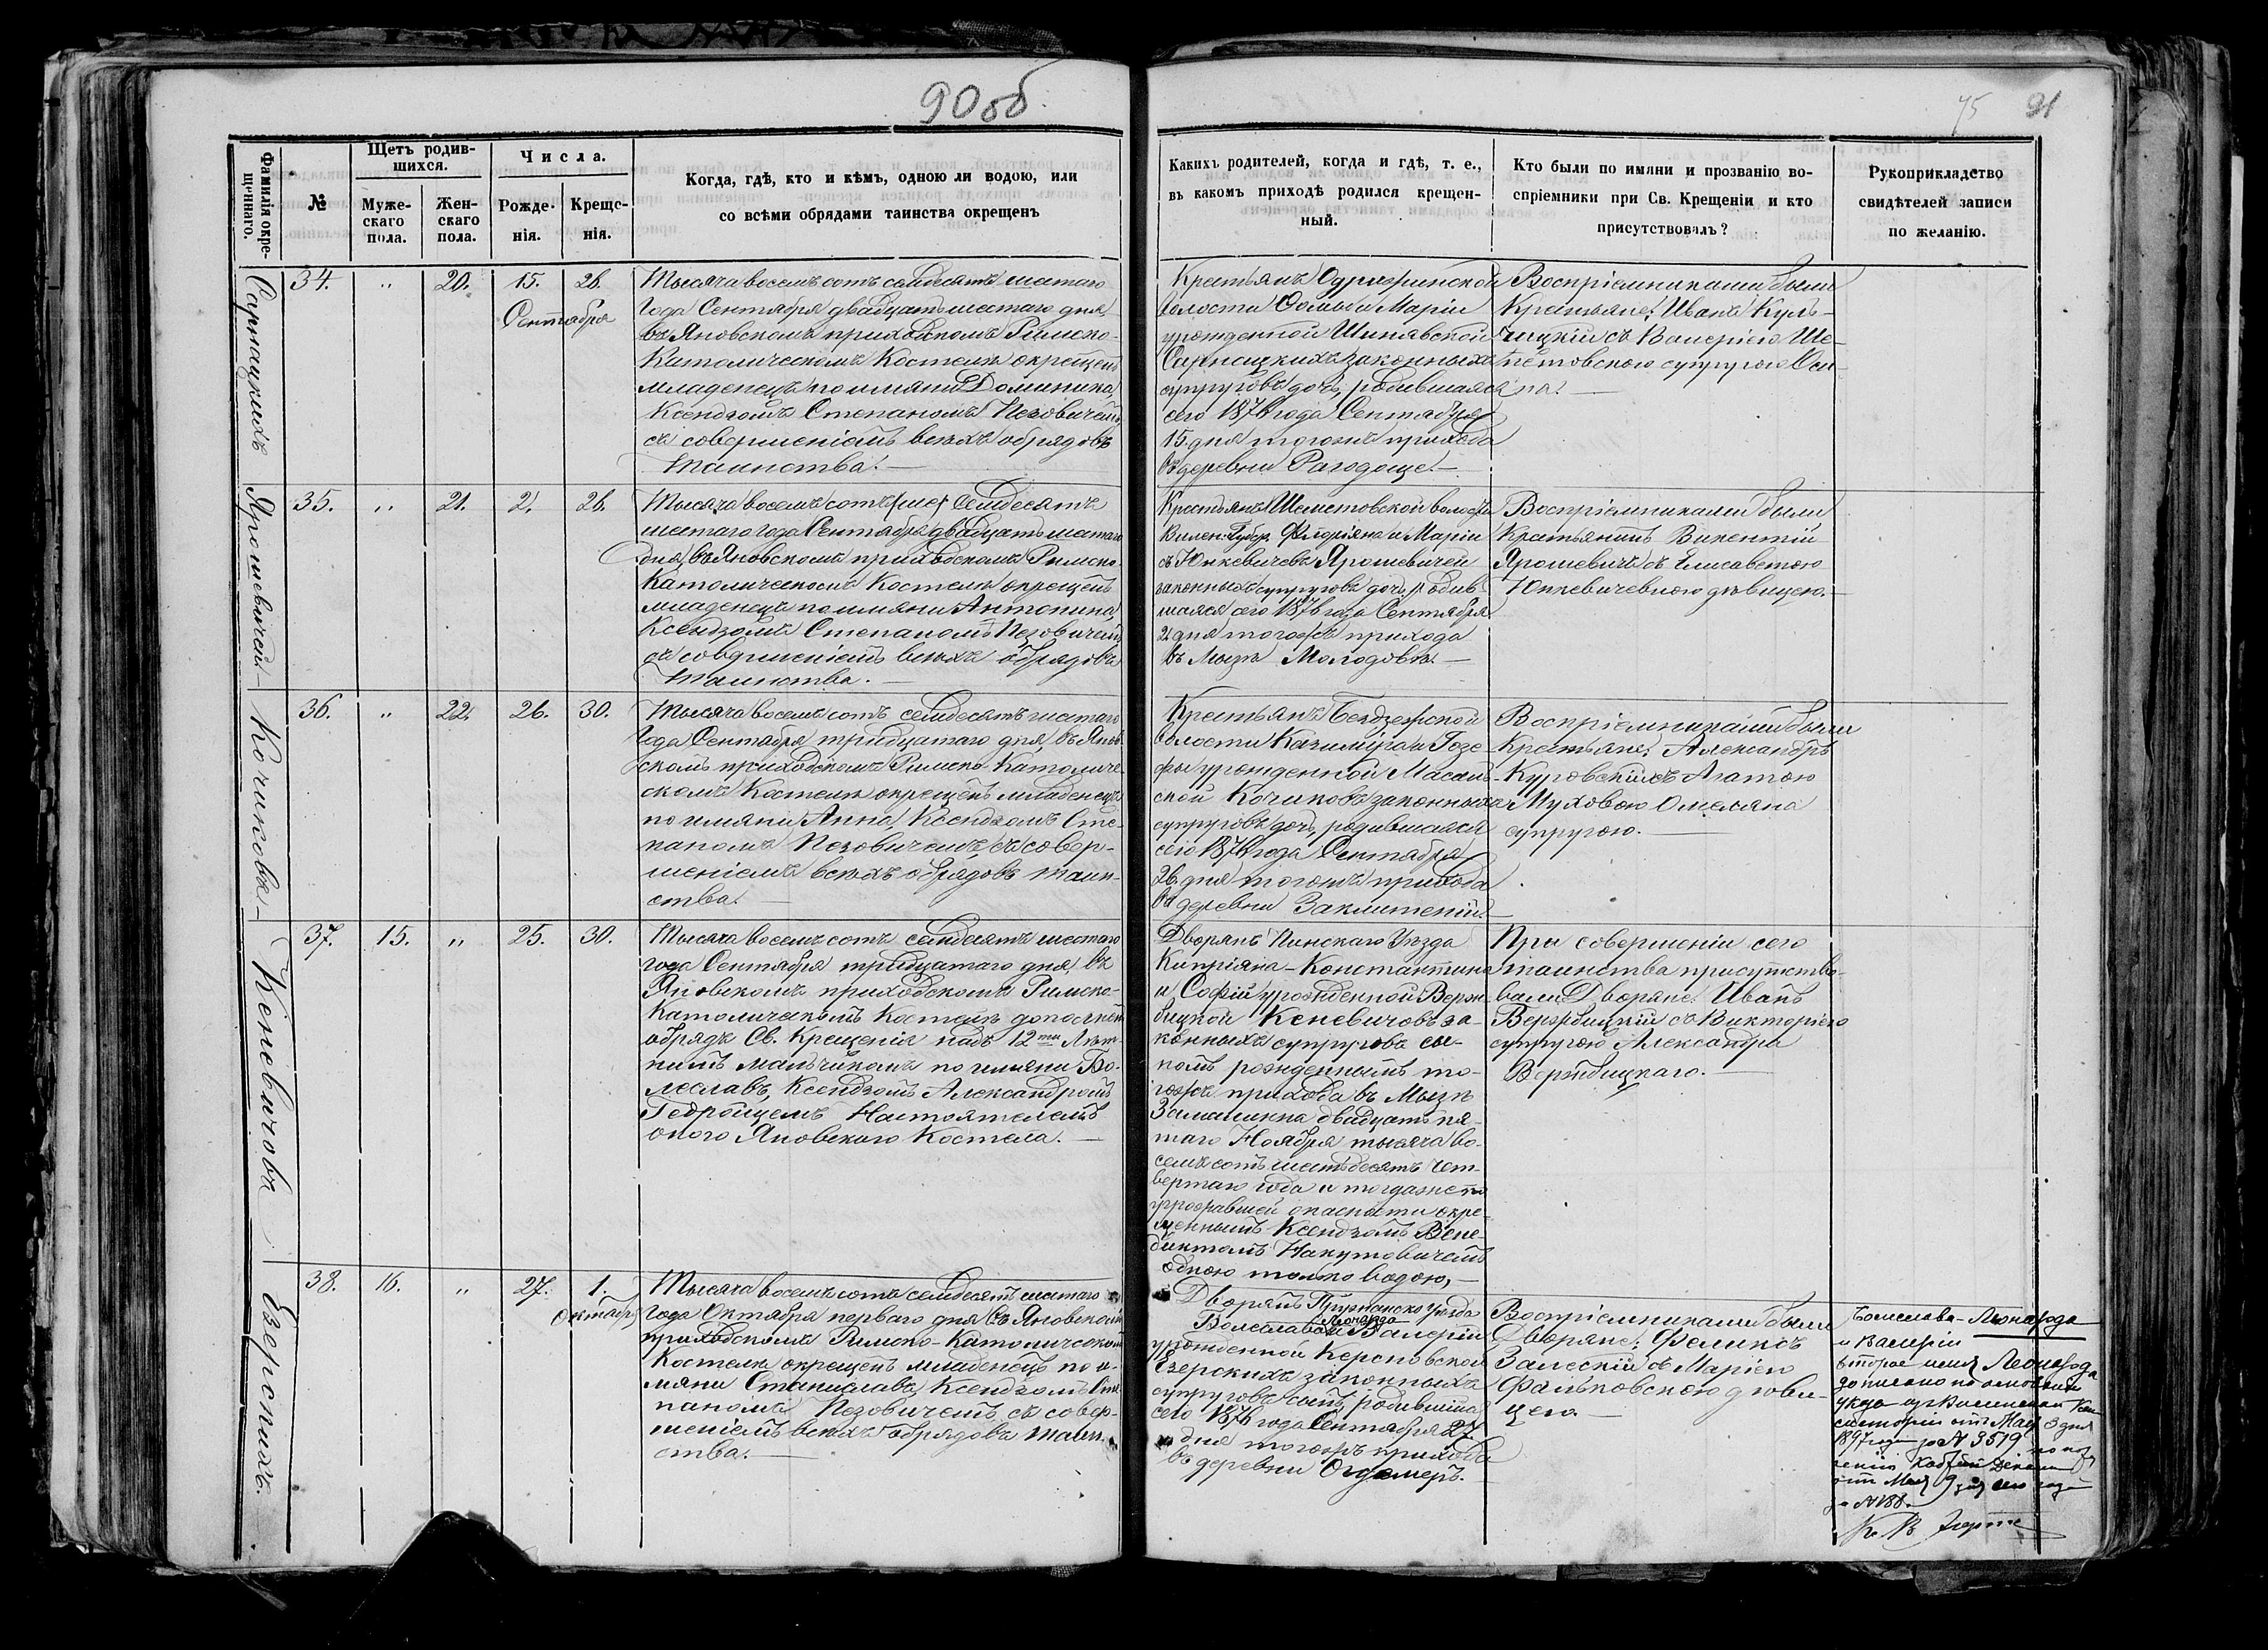 90 об
75 91
Фамилія окре-
щеннаго.
№
Щетъ родив-
шихся.
Муже-
скаго
пола.
Жен-
скаго
пола.
Числа.
Рожде-
нія.
Креще-
нія.
Когда, гдѣ, кто и кѣмъ, одною ли водою, или
со всѣми обрядами таинства окрещенъ
Какихъ родителей, когда и гдѣ, т. е.,
въ какомъ приходѣ родился крещен-
ный.
Кто были по имяни и прозванію во-
спріемники при Св. Крещеніи и кто
присутствовалъ?
Рукоприкладство
свидѣтелей записи
по желанію.
Сарнацкихъ
34. " 20. 15. 26.
Сентября
Тысяча восемьсотъ семдесятъ шестаго
Года Сентября двадцать шестаго дня,
въ Яновскомъ приходскомъ Римско-
Католическомъ Костелѣ окрещенъ
младенецъ по имяни Доминика,
Ксендзомъ Степаномъ Пезовичемъ
съ совершеніемъ всѣхъ обрядовъ
таинства.—
Крестьянъ
волости Ѳомы и Маріи
урожденной Шинявской
Сарнацкихъ законныхъ
супруговъ дочь, родившаяся
сего 1876 года Сентября
15. дня тогоже прихода
въ деревни Рагодоще.—
Воспріемниками были
Крестьяне: Иванъ Куль-
чицкій съ Валеріею Ше-
петовскою супругою Оси-
па.—
Ярошевичей.—
35. " 21. 2. 26.
Тысяча восемьсотъ (шес) Семдесятъ
шестаго Года Сентября двадцать шестаго
дня, въ Яновскомъ приходскомъ Римско-
Католическомъ Костелѣ окрещенъ
младенецъ по имяни Антонина,
Ксендзомъ Степаномъ Пезовичемъ
съ совершеніемъ всѣхъ обрядовъ
таинства.—
Крестьянъ Шеметовской волости
Вилен: Губер. Флоріяна и Маріи
съ Юнкевичевъ Ярошевичей
законныхъ супруговъ дочь, родив-
шаяся сего 1876 года Сентября
2 дня тогожъ прихода
въ Мызѣ Молодовѣ.—
Воспріемниками были
Крестьянинъ Викентій
Ярошевичъ съ Елисаветою
Юнкевичевною дѣвицею.—
Кочиковъ.—
36. " 22. 26. 30.
Тысяча восемьсотъ семдесятъ шестаго
Года Сентября тридцатаго дня, въ Янов-
скомъ приходскомъ Римско-Католиче-
скомъ Костелѣ окрещенъ младенецъ
по имяни Анна, Ксендзомъ Сте-
паномъ Пезовичемъ, съ совер-
шеніемъ всѣхъ обрядовъ таин-
ства.—
Крестьянъ Бездзежской
волости Казиміра и Іозе-
фы урожденной
ской Кочиковъ законныхъ
супруговъ дочь, родившаяся
сего 1876 года Сентября
26. дня тогожъ прихода
въ деревни
Воспріемниками были
Крестьяне: Александръ
Куровскій съ Агатою
Муховою Омеляна
супругою.—
Кеневичовъ
37. 15. " 25. 30.
Тысяча восемьсотъ семдесятъ шестаго
года Сентября тридцатаго дня, въ
Яновскомъ приходскомъ Римско-
Католическомъ Костелѣ дополненъ
обрядъ Св. Крещенія надъ 12ти лѣт-
нимъ мальчикомъ по имяни Бо-
леславъ, Ксендзомъ Александромъ
Гедройцемъ Настоятелемъ
оного Яновскаго Костела.—
Дворянъ Пинскаго Уѣзда
Кипріяна-Константина
и Софіи урожденной Верж-
бицкой Кеневичовъ за-
конныхъ супруговъ сы-
номъ рожденнымъ то-
гожъ прихода въ Мызѣ
двадцать пя-
таго Ноября тысяча во-
семьсотъ шестьдесятъ чет-
вертаго года и тогдаже по
угрожавшей опасности окре-
щеннымъ Ксендзомъ Вене-
диктомъ Накутовичемъ
одною только водою,—
При совершеніи сего
таинства присутство-
вали Дворяне: Иванъ
Вержбицкій съ Викторіею
супругою Александра
Вержбицкаго.—
Езерскихъ.
38. 16. " 27. 1.
Октября
Тысяча восемьсотъ семдесятъ шестаго
Года Октября перваго дня въ Яновскомъ
приходскомъ Римско-Католическомъ
Костелѣ окрещенъ младенецъ по и-
мяни Станиславъ, Ксендзомъ Сте-
паномъ Пезовичемъ съ совер-
шеніемъ всѣхъ обрядовъ таин-
ства.—
Дворянъ Пружанско Уѣзда
Леонарда
Болеслава и Валеріи
урожденной Керсновской
Езерскихъ законныхъ
супруговъ сынъ, родившійся
сего 1876 года Сентября 27
дня тогожъ прихода
въ деревни Огдемеръ.
Воспріемниками были
Дворяне: Феликсъ
Залескій съ Маріею
Фальковскою дѣви-
цею.—
Болеслава-Леонарда
и Валеріи
второе имя Леонарда
дописано на основаніи
указа
систоріи отъ Мая 3 дня
1897 года за № 3519
отъ Мая 9 дня сего года
за № 188.